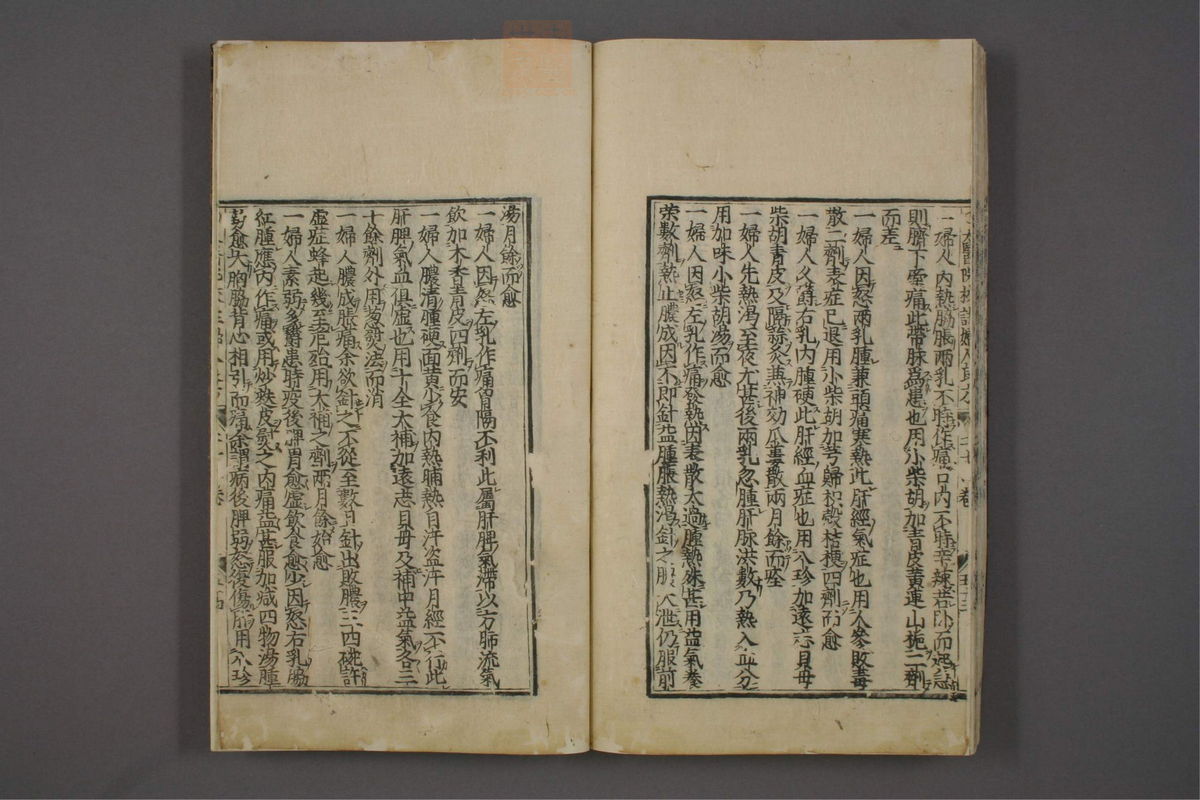 一婦人内熱脇脹兩乳不時作痛口内不時辛辣若卧而起急
則臍下牽痛此帶脉為患也用小柴胡加青皮黄連山梔二劑
而差
一婦人因怒兩乳腫兼頭痛寒熱此肝經氣症也用人參敗毒
散二劑表症已退用小柴胡加芎歸枳殻桔梗四劑而愈
一婦人久鬱右乳内腫硬此肝經血症也用八珍加遠志貝母
柴胡青皮及隔蒜灸兼神効瓜蔞散兩月餘而痊
一婦人先熱渇至夜尤甚後兩乳忽腫肝脉洪數乃熱入血分
用加味小柴胡湯而愈
一婦人因怒左乳作痛發熱因表散太過腫熱殊甚用益氣養
榮數劑熱止膿成因不即針益腫脹熱渇針之膿大泄仍服前
湯月餘而愈
一婦人因怒左乳作痛胷膈不利此屬肝脾氣滯以方脉流氣
飲加木香青皮四劑而安
一婦人膿清腫硬面黄少食内熱晡熱自汗盗汗月經不行此
肝脾氣血俱虚也用十全大補加遠志貝母及補中益氣各三
十餘劑外用葱熨法而消
一婦人膿成脹痛余欲針之不從至數日針出敗膿三四碗許
虚症蜂起幾至危殆用大補之劑兩月餘始愈
一婦人素弱多鬱患時疫後脾胃愈虚飲食愈少因怒右乳脇
紅腫應内作痛或用炒麩皮熨之内痛益甚服加减四物湯腫
愈大胸脇背心相引而痛余謂病後脾弱怒後傷肝用八珍